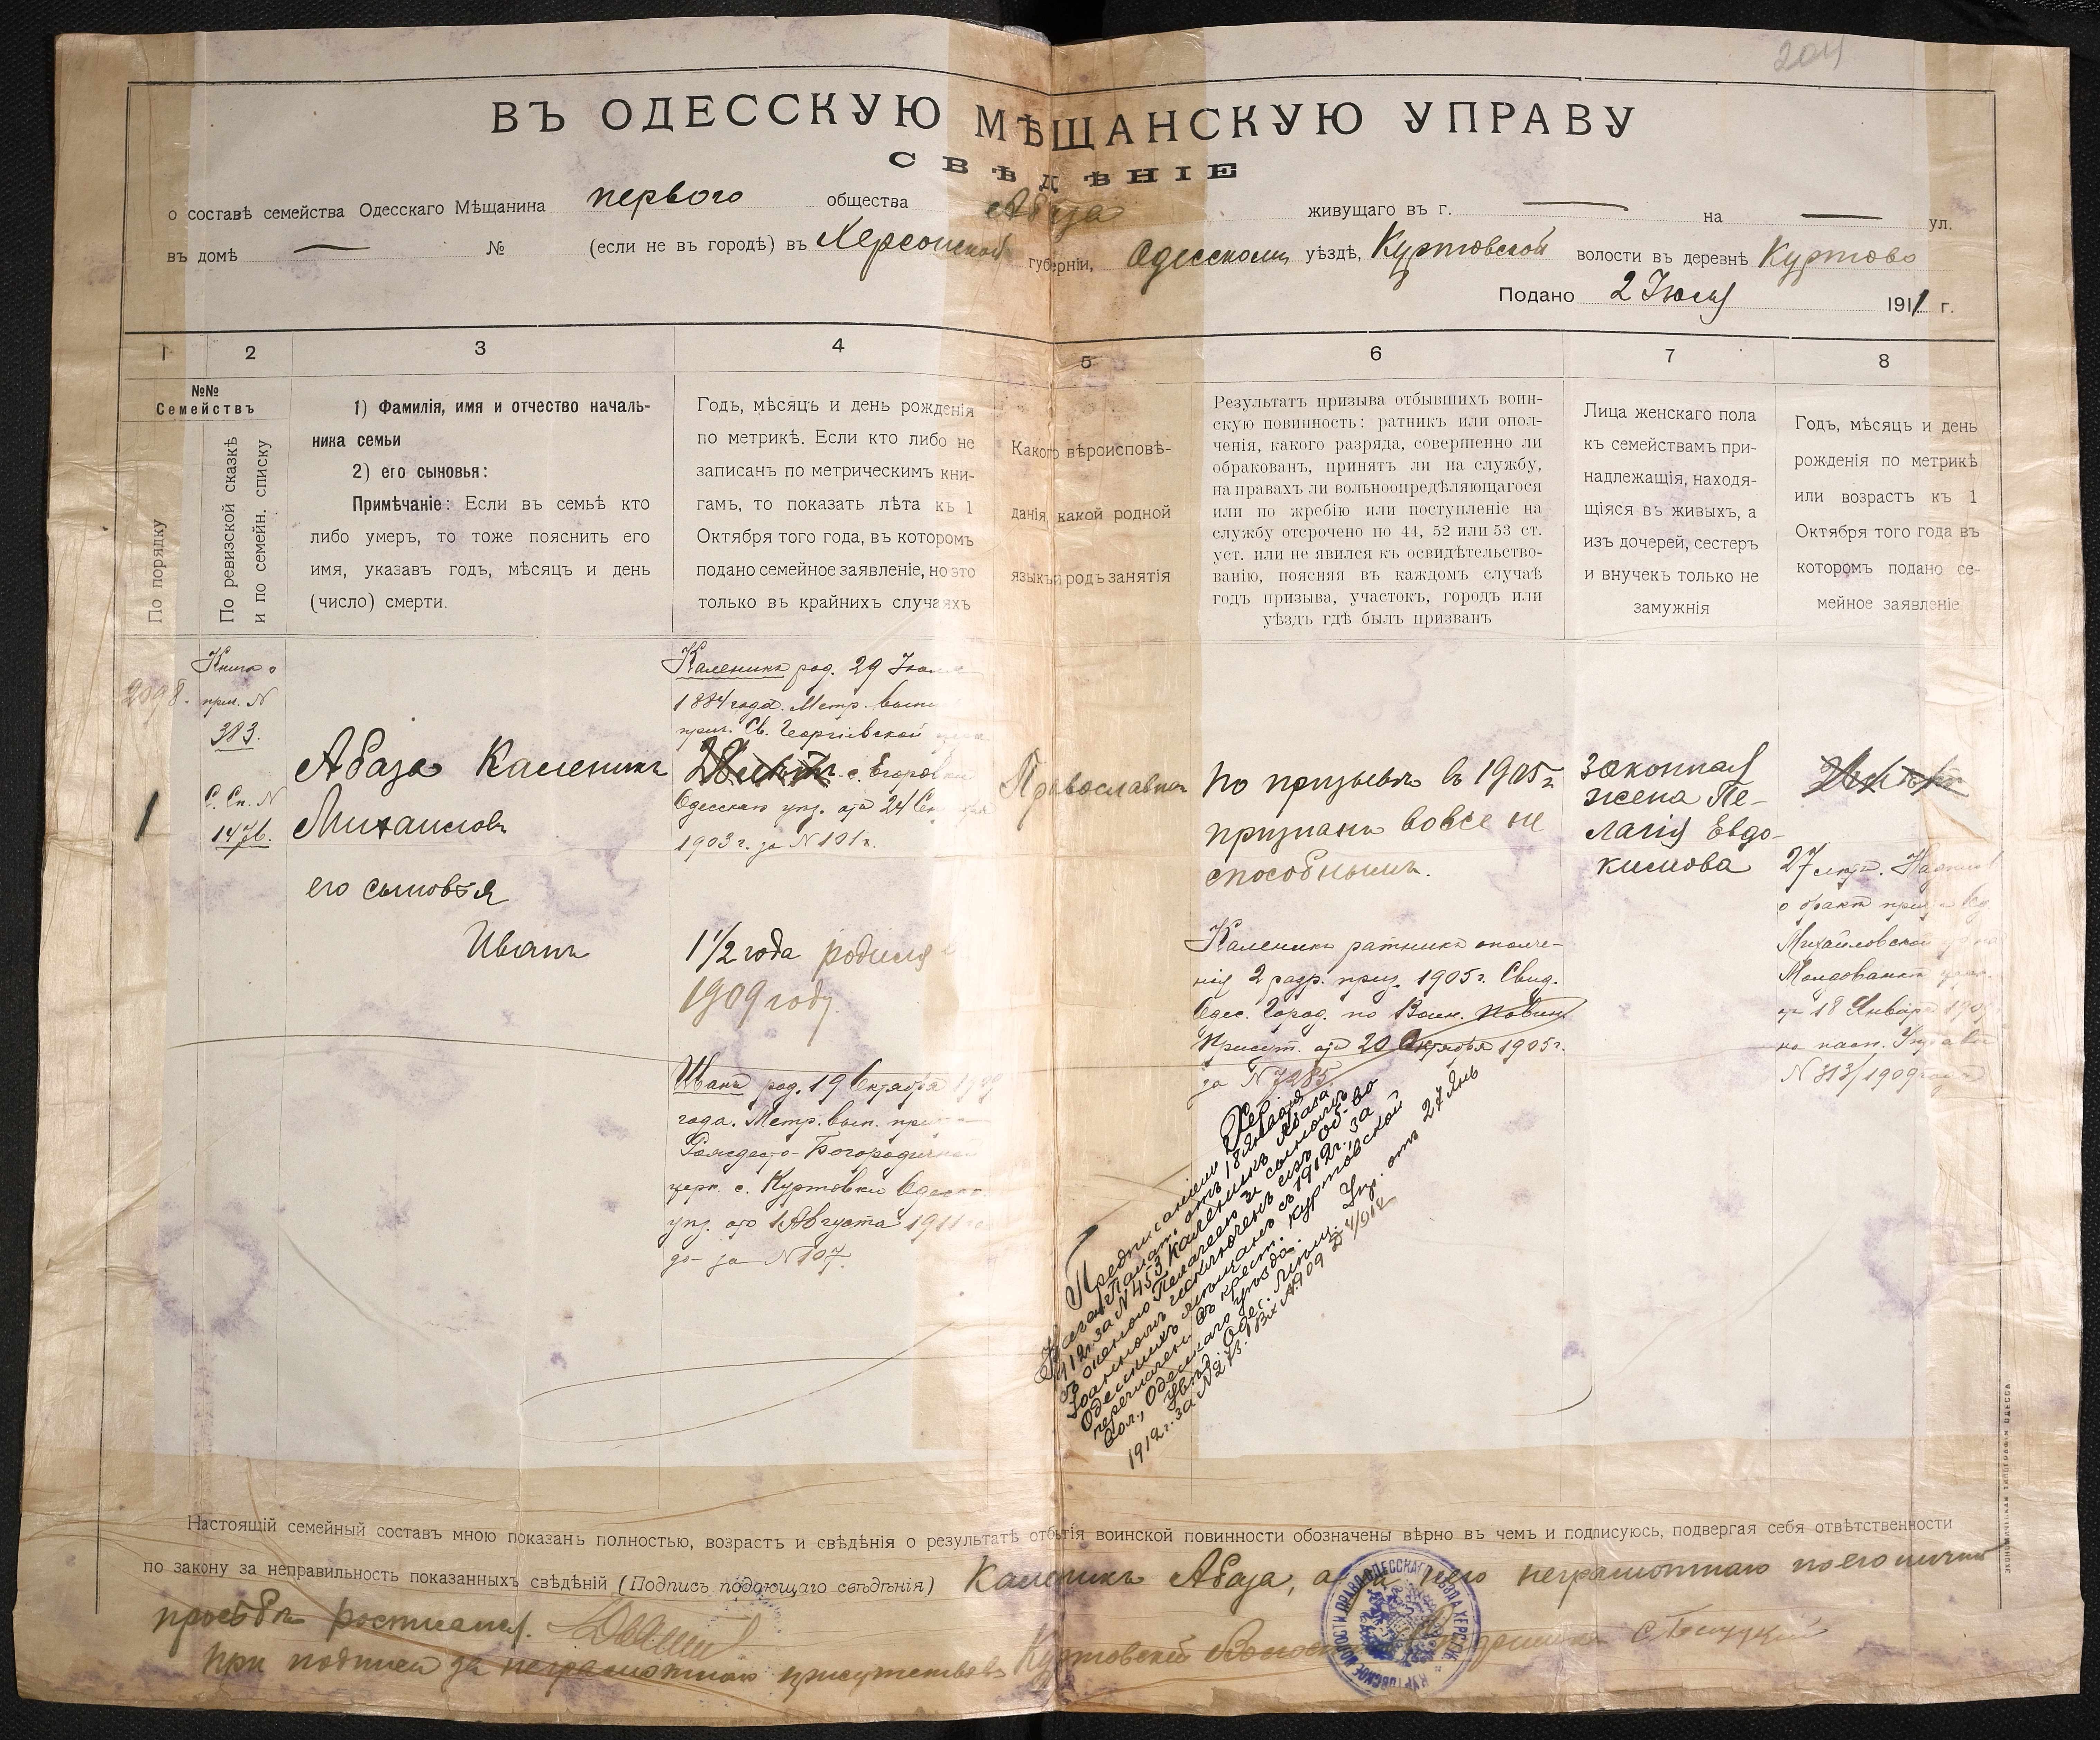 204
ВЪ ОДЕССКУЮ МѢЩАНСКУЮ УПРАВУ
СВѢДѢНІЕ
о составѣ семейства Одесскаго Мѣщанина первого общества Абаза живущаго въ г. — на — ул.
въ домѣ — № (если не въ городѣ) въ Херсонской губерніи, Одесскомъ уѣздѣ, Куртовской волости въ деревнѣ Куртово
Подано 2 Іюля 1911 г.
1 2 3 4 5 6 7 8
№№
Семействъ
По порядку
По ревизской сказкѣ
и по семейн. списку
1) Фамилія, имя и отчество началь-
ника семьи
2) его сыновья:
Примѣчаніе: Если въ семьѣ кто
либо умеръ, то тоже пояснить его
имя, указавъ годъ, мѣсяцъ и день
(число) смерти.
Годъ, мѣсяцъ и день рожденія
по метрикѣ. Если кто либо не
записанъ по метрическимъ кни-
гамъ, то показать лѣта къ 1
Октября того года, въ которомъ
подано семейное заявленіе, но это
только въ крайнихъ случаяхъ
Какого вѣроисповѣ-
данія, какой родной
языкъ и родъ занятія
Результатъ призыва отбывшихъ воин-
скую повинность: ратникъ или опол-
ченія, какого разряда, совершенно ли
обракованъ, принятъ ли на службу,
на правахъ ли вольноопредѣляющагося
или по жребію или поступленіе на
службу отсрочено по 44, 52 или 53 ст.
уст. или не явился къ освидѣтельство-
ванію, поясняя въ каждомъ случаѣ
годъ призыва, участокъ, городъ или
уѣздъ гдѣ былъ призванъ
Лица женскаго пола
къ семействамъ при-
надлежащія, находя-
щіяся въ живыхъ, а
изъ дочерей, сестеръ
и внучекъ только не
замужнія
Годъ, мѣсяцъ и день
рожденія по метрикѣ
или возрастъ къ 1
Октября того года въ
которомъ подано се-
мейное заявленіе
2898.
1
Книга о
прил. N
383.
С. Сп. N
1476.
Абаза Каленикъ
Михаиловъ
его сыновья
Иванъ
Каленикъ род. 29 Іюля
1884 года. Метр. выпи
прич. Св. Георгіевской
с. Егоровки
Одесскаго уѣз. отъ 24
1903 г. за N 101
1 1/2 года родился
1909 году
Иванъ род. 19 Октября 1909
года. Метр. вып. при
Рождесто-Богородичной
церк. с. Куртовки Одесск.
уѣз. отъ 1 Августа 1911
за N 107.
Православная
По призыву въ 1905 г
признанъ вовсе не
способнымъ.
Каленикъ ратникъ ополче-
нія 2 разр. приз. 1905 г. Свид.
Одес. Город. по Воин. Повин
Присут. отъ 20 Октября 1905 г.
за N 7285.
Предписаніемъ Хер.
Казен. Палаты отъ 18 Января
1912 г. за N 453 Каленикъ Абаза
съ женою Пелагеею и сыномъ
Іоанномъ исключенъ изъ об-ва
Одесскихъ мѣщанъ съ 1912 г. за
перечислен. въ крест. Куртовской
вол., Одесскаго уѣзда.
Увѣд. Одес. Мѣщ. Упр. отъ 27 Янв
1912 г. за N 273. Вх А 909 4/912
законная
жена Пе-
лагія Евдо-
кимова
27
о бракѣ
Михайловской
Молдованкѣ
18 Января 1909
N 313/1909
Настоящій семейный составъ мною показанъ полностью, возрастъ и свѣдѣнія о результатѣ отбытія воинской повинности обозначены вѣрно въ чемъ и подписуюсь, подвергая себя отвѣтственности
по закону за неправильность показанныхъ свѣдѣній (Подпись подающаго свѣдѣнія) Каленикъ Абаза, а за него неграмотнаго по его личной
просьбѣ росписался.
При подписи за неграмотнаго присутствовалъ Куртовскій Волостной Старшина
ЭКОНОМИЧЕСКАЯ ТИПОГРАФІЯ ОДЕССА